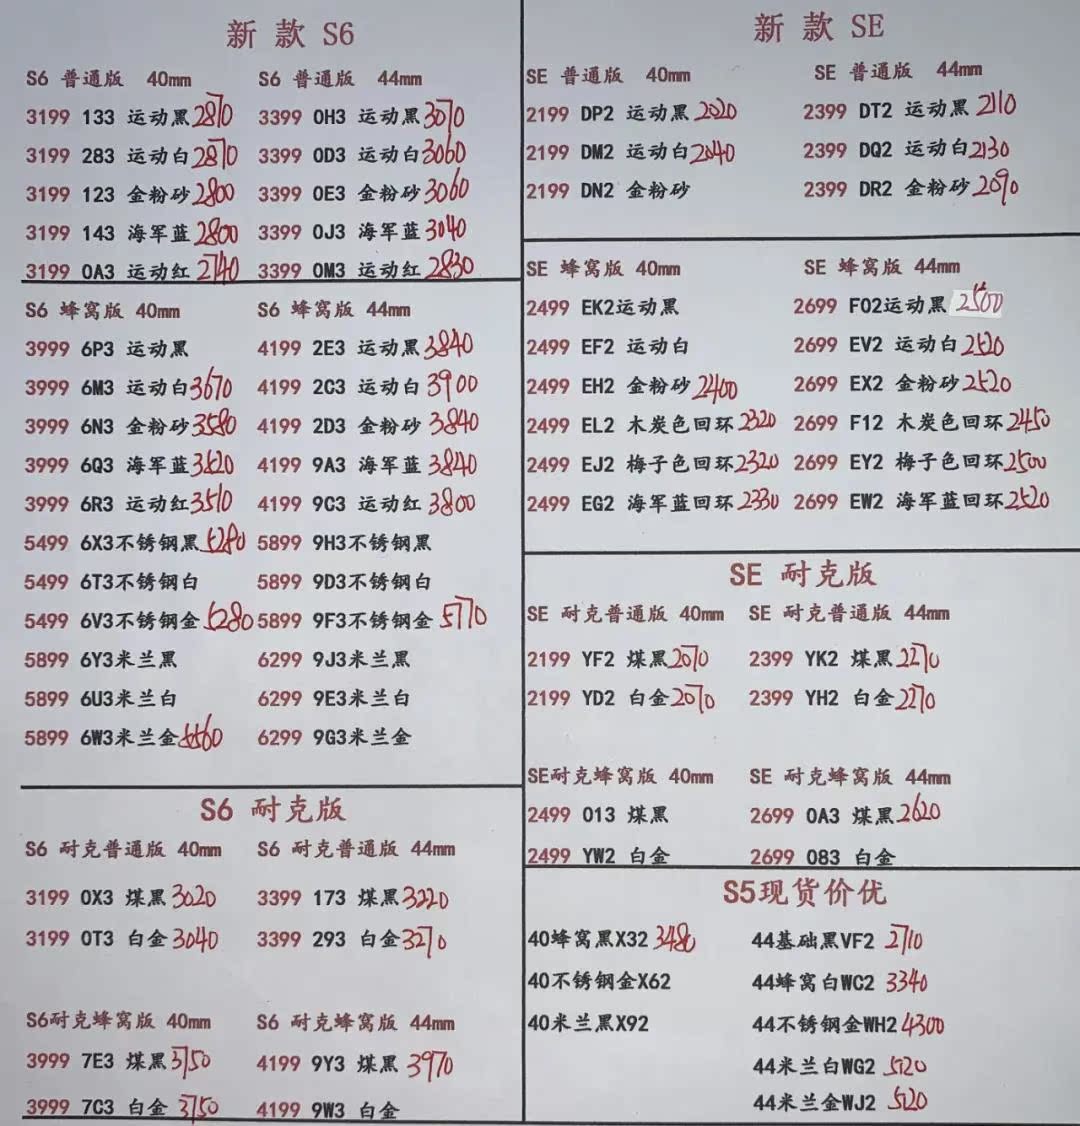 新 款 S6
S6 普通版 40mm S6 普通版 44mm
3199 133 运动黑 2870 3399 0H3 运动黑 3070
3199 283 运动白 2870 3399 0D3 运动白 3060
3199 123 金粉砂 2800 3399 0E3 金粉砂 3060
3199 143 海军蓝 2800 3399 0J3 海军蓝 3040
3199 0A3 运动红 2740 3399 0M3 运动红 2830
S6 蜂窝版 40mm S6 蜂窝版 44mm
3999 6P3 运动黑 4199 2E3 运动黑 3840
3999 6M3 运动白 3670 4199 2C3 运动白 3900
3999 6N3 金粉砂 3580 4199 2D3 金粉砂 3840
3999 6Q3 海军蓝 3520 4199 9A3 海军蓝 3840
3999 6R3 运动红 3510 4199 9C3 运动红 3800
5499 6X3不锈钢黑 5280 5899 9H3不锈钢黑
5499 6T3不锈钢白 5899 9D3不锈钢白
5499 6V3不锈钢金 5280 5899 9F3不锈钢金 5770
5899 6Y3米兰黑 6299 9J3米兰黑
5899 6U3米兰白 6299 9E3米兰白
5899 6W3米兰金 5560 6299 9G3米兰金
S6 耐克版
S6 耐克普通版 40mm S6 耐克普通版 44mm
3199 0X3 煤黑 3020 3399 173 煤黑 3220
3199 0T3 白金 3040 3399 293 白金 3270
S6耐克蜂窝版 40mm S6 耐克蜂窝版 44mm
3999 7E3 煤黑 3750 4199 9Y3 煤黑 3970
3999 7C3 白金 3750 4199 9W3 白金
新 款 SE
SE 普通版 40mm SE 普通版 44mm
2199 DP2 运动黑 2020 2399 DT2 运动黑 2110
2199 DM2 运动白 2040 2399 DQ2 运动白 2130
2199 DN2 金粉砂 2399 DR2 金粉砂 2090
SE 蜂窝版 40mm SE 蜂窝版 44mm
2499 EK2运动黑 2699 F02运动黑 2500
2499 EF2 运动白 2699 EV2 运动白 2520
2499 EH2 金粉砂 2400 2699 EX2 金粉砂 2520
2499 EL2 木炭色回环 2320 2699 F12 木炭色回环 2450
2499 EJ2 梅子色回环 2320 2699 EY2 梅子色回环 2500
2499 EG2 海军蓝回环 2330 2699 EW2 海军蓝回环 2520
SE 耐克版
SE 耐克普通版 40mm SE 耐克普通版 44mm
2199 YF2 煤黑 2070 2399 YK2 煤黑 2270
2199 YD2 白金 2070 2399 YH2 白金 2270
SE耐克蜂窝版 40mm SE 耐克蜂窝版 44mm
2499 013 煤黑 2699 0A3 煤黑 2620
2499 YW2 白金 2699 083 白金
S5现货价优
40蜂窝黑X32 3480 44基础黑VF2 2710
40不锈钢金X62 44蜂窝白WC2 3340
40米兰黑X92 44不锈钢金WH2 4300
44米兰白WG2 5120
44米兰金WJ2 5120